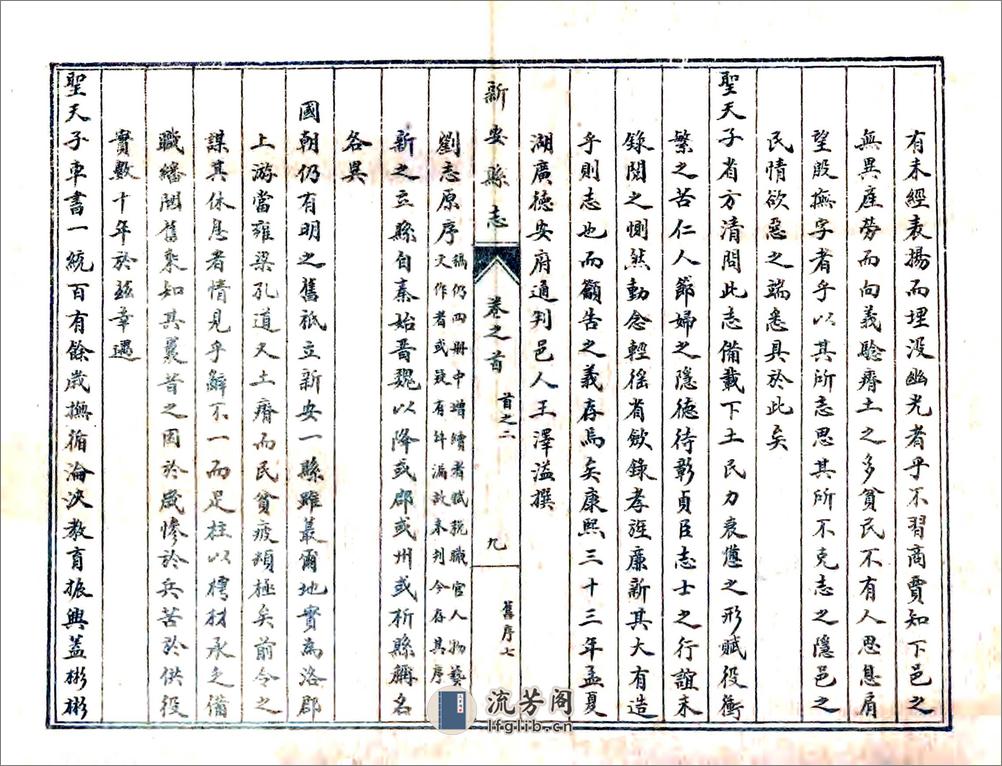 有未經表揚而埋没幽光者乎不習商賈知下邑之
無異產勞而向義駼瘠土之多貧民不有人思息肩
望殷撫字者乎以其所志思其所不克志之隱邑之
民情欲惡之端悉具於此矣
聖天子省方清問此志備載下土民力衰憊之形賦役衝
繁之苦仁人節婦之隱德待彰貞臣志士之行誼未
錄閱之惻然動念輕徭省斂錄孝旌廉新其大有造
乎則志也而籲告之義存焉矣康熙三十三年孟夏
湖廣德安府通判邑人王澤溢撰
新安縣志
卷之首
首之二
九
舊序七
劉志原序稿仍四冊中增續者賦稅職官人物藝
文作者或疑有牟漏故未刊今存其序
新之立縣自秦始晉魏以降或郡或州或析縣稱名
各異
國朝仍有明之舊祇立新安一縣雖蕞爾地實為洛郡
上游當雍梁孔道又土瘠而民貧疲頹極矣前令之
謀其休息者情見乎辭不一而足柱以樗材承乏備
職繙閱舊乘知其曩昔之困於歲慘於兵苦於供役
實數十年於茲幸遇
聖天子車書一統百有餘歲撫循淪浹教育振興蓋彬彬
流芳阁
lfglib.cn